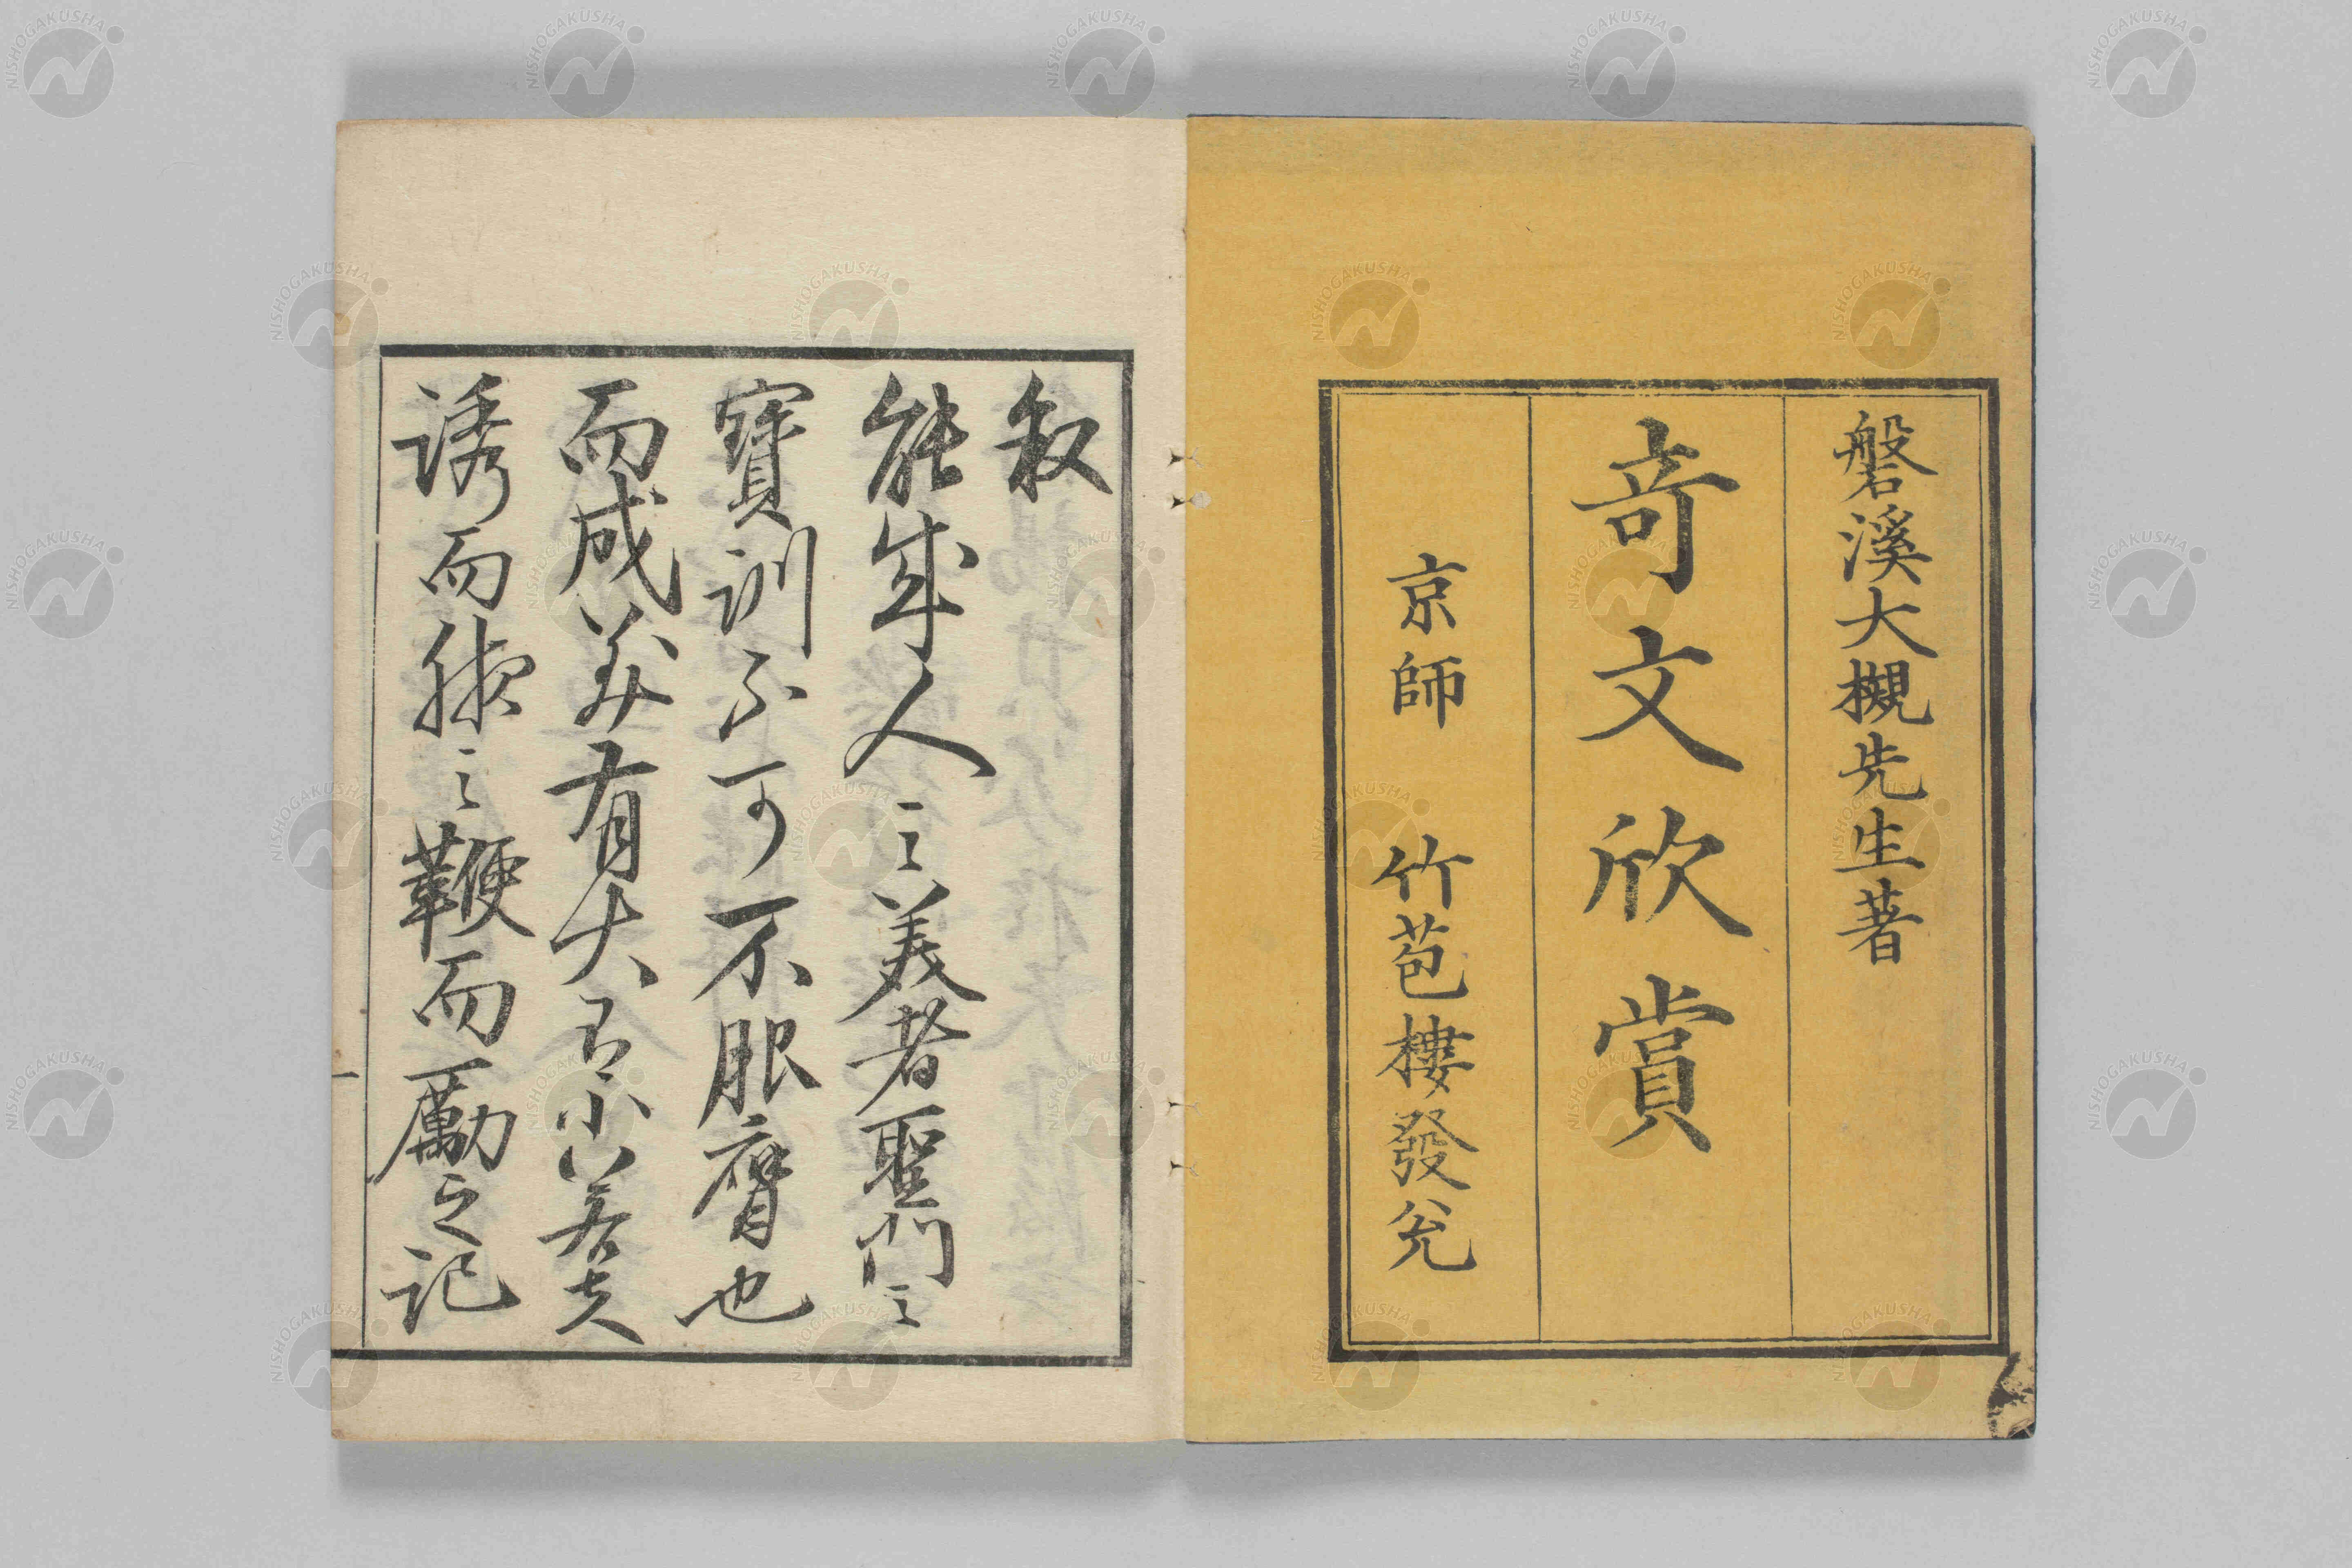 磐溪大槻先生著
竒文欣賞
京師 竹苞樓發兌
叙
能成人之美者聖門之
寶訓不可不服膺也
而成美有大有小若夫
誘而掖之鞭而勵之記
NISHOGAKUSHA